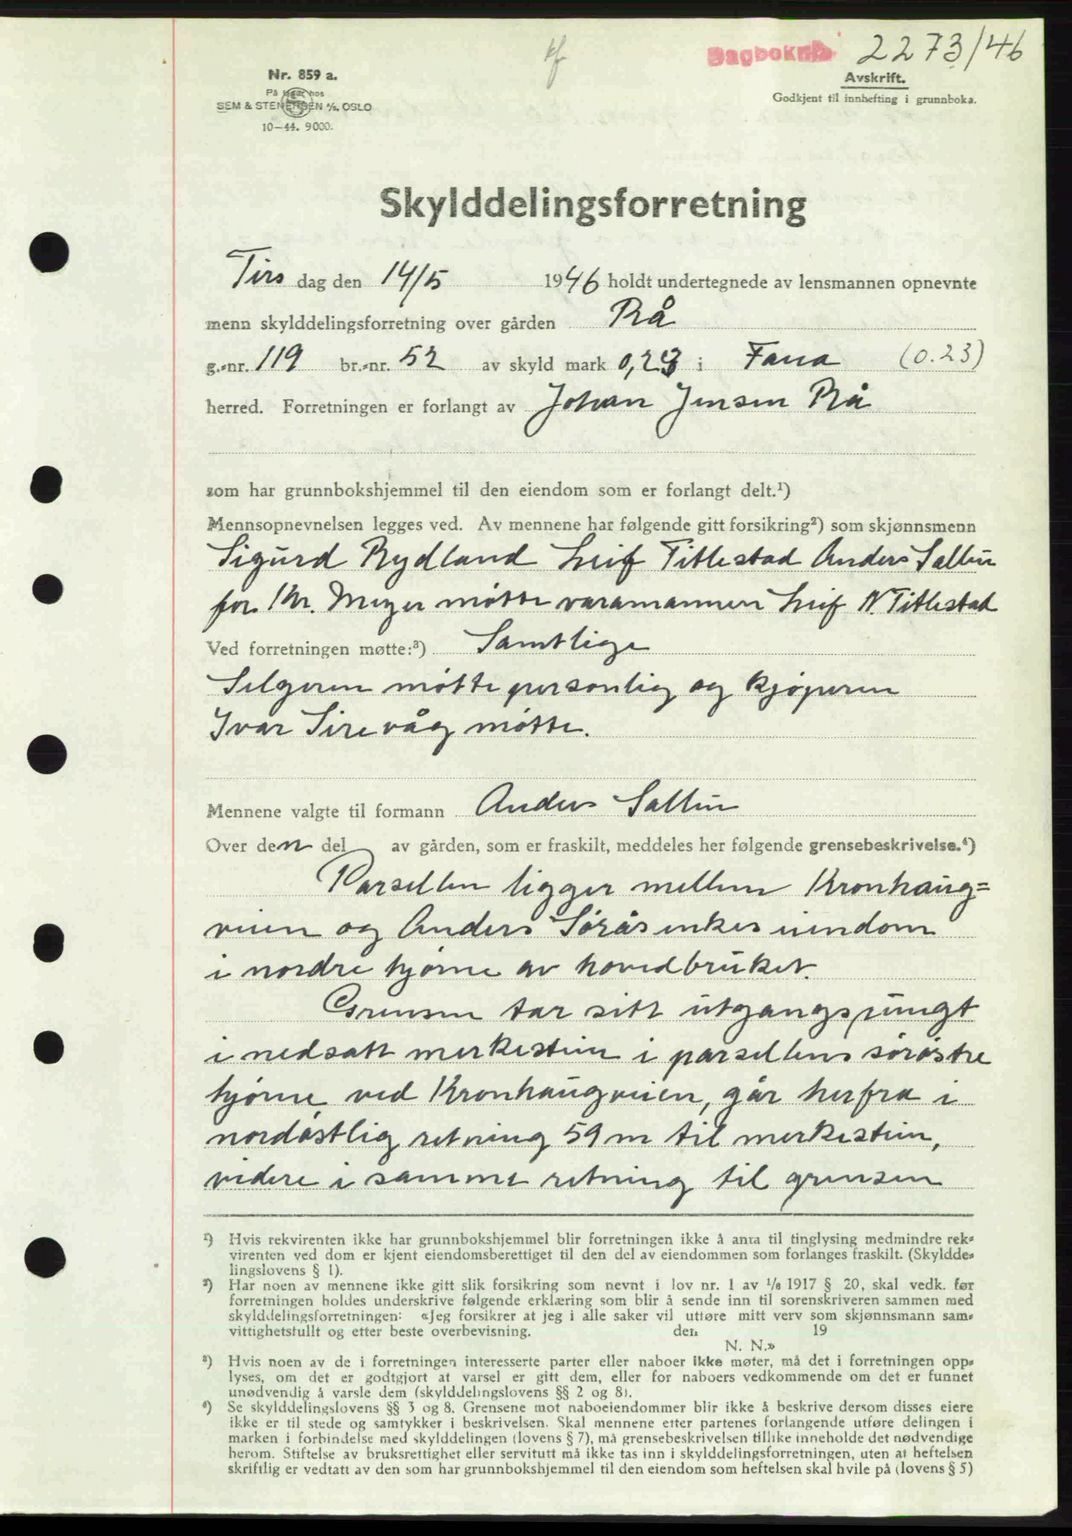 Dagboknr. 2273/46
Nr. 859 a.
På lager hos
SEM & STENERSEN A/S. OSLO
10-44. 9000.
Avskrift.
Godkjent til innhefting i grunnboka.
Skylddelingsforretning
Tirs dag den 14/5 1946 holdt undertegnede av lensmannen opnevnte
menn skylddelingsforretning over gården Rå
g.-nr. 119 br.-nr. 52 av skyld mark 0,23 i Fana (0.23)
herred. Forretningen er forlangt av Johan Jensen Rå
som har grunnbokshjemmel til den eiendom som er forlangt delt.¹)
Mennsopnevnelsen legges ved. Av mennene har følgende gitt forsikring²) som skjønnsmenn
Sigurd Rydland Leif Titlestad Anders
for Kr. Meyer møtte varamannen Leif N. Titlestad
Ved forretningen møtte:³) Samtlige
Selgeren møtte personlig og kjøperen
Ivar Sirevåg møtte.
Mennene valgte til formann Anders
Over den del av gården, som er fraskilt, meddeles her følgende grensebeskrivelse.⁴)
Parsellen ligger mellem Kronhaug=
veien og Anders Søråsenkes eiendom
i nordre hjørne av hovedbruket.
Grensen tar sitt utgangspungt
i nedsatt merkestein i parsellens sørøstre
hjørne ved Kronhaugveien, går herfra i
nordøstlig retning 59 m til merkestein,
videre i samme retning til grensen
¹) Hvis rekvirenten ikke har grunnbokshjemmel blir forretningen ikke å anta til tinglysing medmindre rek-
virenten ved dom er kjent eiendomsberettiget til den del av eiendommen som forlanges fraskilt. (Skyldde-
lingslovens § 1).
²) Har noen av mennene ikke gitt slik forsikring som nevnt i lov nr. 1 av 1/6 1917 § 20, skal vedk. før
forretningen holdes underskrive følgende erklæring som blir å sende inn til sorenskriveren sammen med
skylddelingsforretningen: «Jeg forsikrer at jeg i alle saker vil utføre mitt verv som skjønnsmann sam-
vittighetsfullt og etter beste overbevisning. den 19
N. N.»
³) Hvis noen av de i forretningen interesserte parter eller naboer ikke møter, må det i forretningen opp-
lyses, om det er godtgjort at varsel er gitt dem, eller for naboers vedkommende om det er funnet
unødvendig å varsle dem (skylddelingslovens §§ 2 og 8).
⁴) Se skylddelingslovens §§ 3 og 8. Grensene mot naboeiendommer blir ikke å beskrive dersom disses eiere
ikke er til stede og samtykker i beskrivelsen. Skal mennene etter partenes forlangende utføre delingen i
marken i forbindelse med skylddelingen (lovens § 7), må grensebeskrivelsen tillike inneholde det nødvendige
herom. Stiftelse av bruksrettighet eller servitutt må ikke tas inn i skylddelingsforretningen, uten at heftelsen
skriftlig er vedtatt av den som har grunnbokshjemmel til den eiendom som heftelsen skal hvile på (lovens § 5)